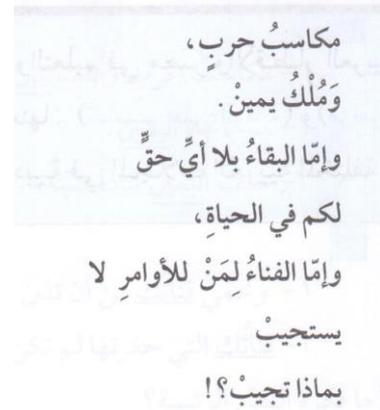 مكاسبُ حربٍ،
وَمُلْكُ يمينْ.
وإمّا البقاءُ بلا أيِّ حقٍّ
لكم في الحياةِ،
وإمّا الفناءُ لِمَنْ للأوامرِ لا
يستجيبْ
بماذا تجيبْ؟!